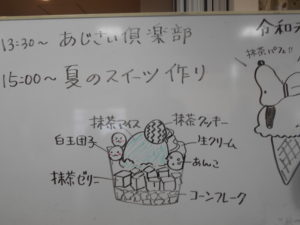 13:30～ あじさい倶楽部
15:00～ 夏のスイーツ作り
抹茶アイス
抹茶クッキー
白玉団子
生クリーム
あんこ
抹茶ゼリー
コーンフレーク
令和
抹茶パフェ!!